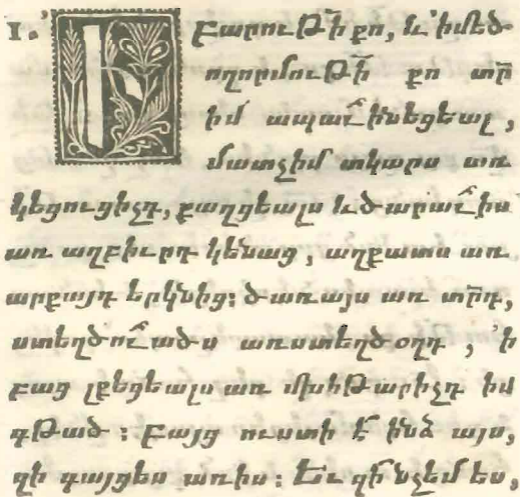 1. Ի բարութի՜ քո, և ՚ի մեծ
ողորմութի՜ քո տր՜
իմ ապաւինեցեալ,
մատչիմ տկարս առ
կեցուցիչդ, քաղցեալս և ծարաւիս
առ աղբիւրդ կենաց, աղքատս առ
արքայդ երկնից։ ծառայս առ տր՜դ,
ստեղծուածս առ ստեղծօղդ, ՚ի
բաց լքեցեալս առ մխիթարիչդ իմ
գթած։ Բայց ուստի է ինձ այս,
զի գայցես առ իս։ Եւ զի՞նչ եմ ես,